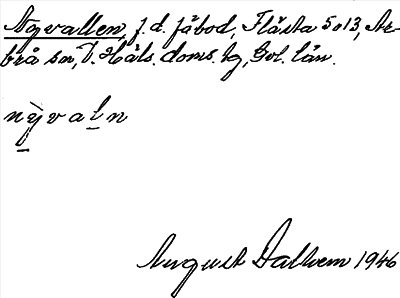 Nyvallen, f. d. fäbod, Flästa 5 o 13, Ar-
brå sn, V. Häls. doms. tg, Gvl. län.
nỳvaḷn
August Dalhem 1946